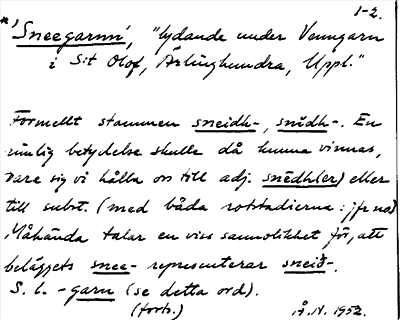 1-2.
*'Sneegarnn', "lydande under Venngarn
i S:t Olof, Ärlinghundra, Uppl."
Formellt stammen sneidh-, snīdh-. En
rimlig betydelse skulle då kunna vinnas,
vare sig vi hålla oss till adj. snēdh(er) eller
till subst. (med båda rotstadierna: jfr no)
Måhända talar en viss sannolikhet för, att
belägets snee- representerar sneið-.
S. l. -garn (se detta ord).
(forts.) Å.N. 1952.